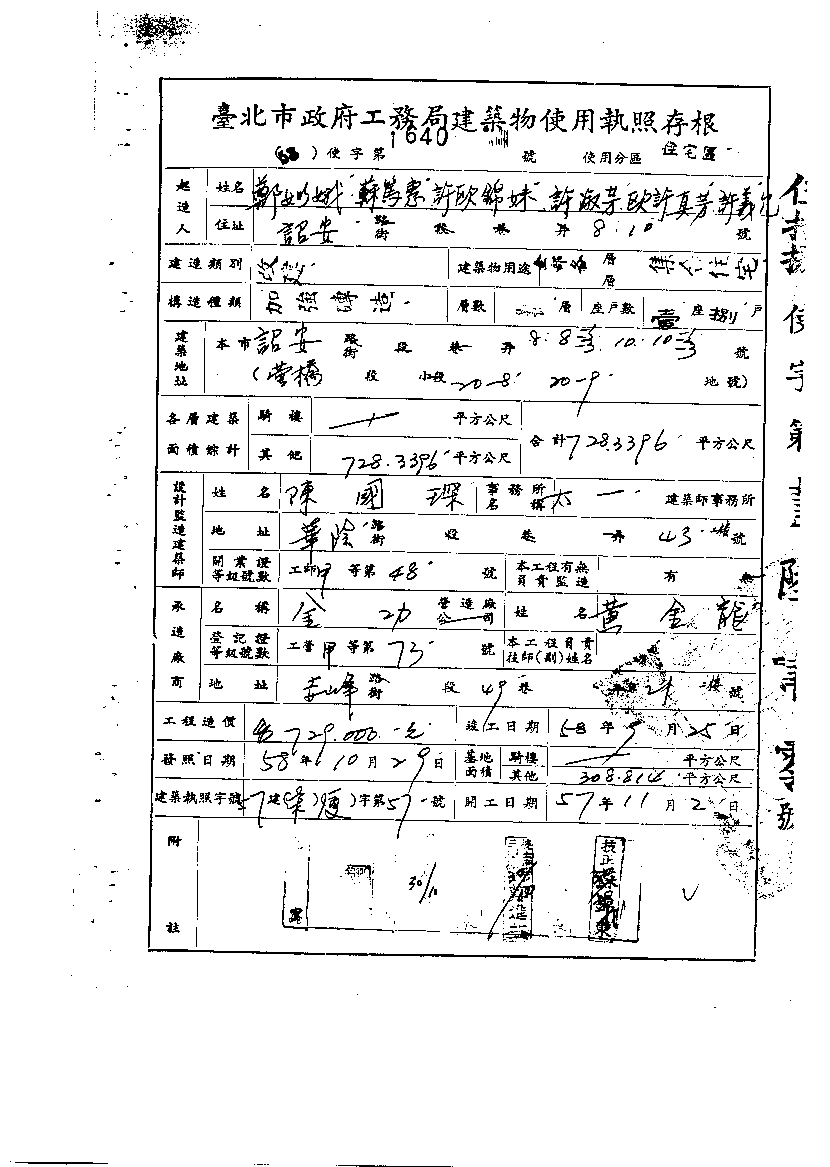 臺北市政府工務局建築物使用執照存根
(58)使字第1640號 使用分區 住宅區
起造人 姓名 許歐錦妹
住址 詔安 路街 段 巷 弄 8.10 號
建造類別 改建 建築物用途 層層 集合住宅
構造種類 加強磚造 層數 層 座戶數 壹座捌戶
建築地址 本市詔安 路街 段 巷 弄 8. 10. 號
(營橋 段 小段 20-8 20-9 地號)
各層建築面積綜計 騎樓 平方公尺 合計728.3396平方公尺
其他 728.3396平方公尺
設計監造建築師 姓名 陳國琛 事務所名稱 太一 建築師事務所
地址 華陰 路街 段 巷 弄 43 號
開業證等級號數 工師甲等第48號 本工程有無負責監造 有 無
承造廠商 名稱 金功 營造廠公司 姓名 黃金龍
登記證等級號數 工營甲等第73號 本工程負責技師(副)姓名
地址 路街 段 49巷 弄 21 號
工程造價 729.000.元 竣工日期 58年9月25日
發照日期 58年10月29日 基地面積 騎樓 平方公尺
其他 308.814平方公尺
建築執照字號 57建()字第57號 開工日期 57年11月2日
附註
30/10
技正
使字第壹陸肆零號